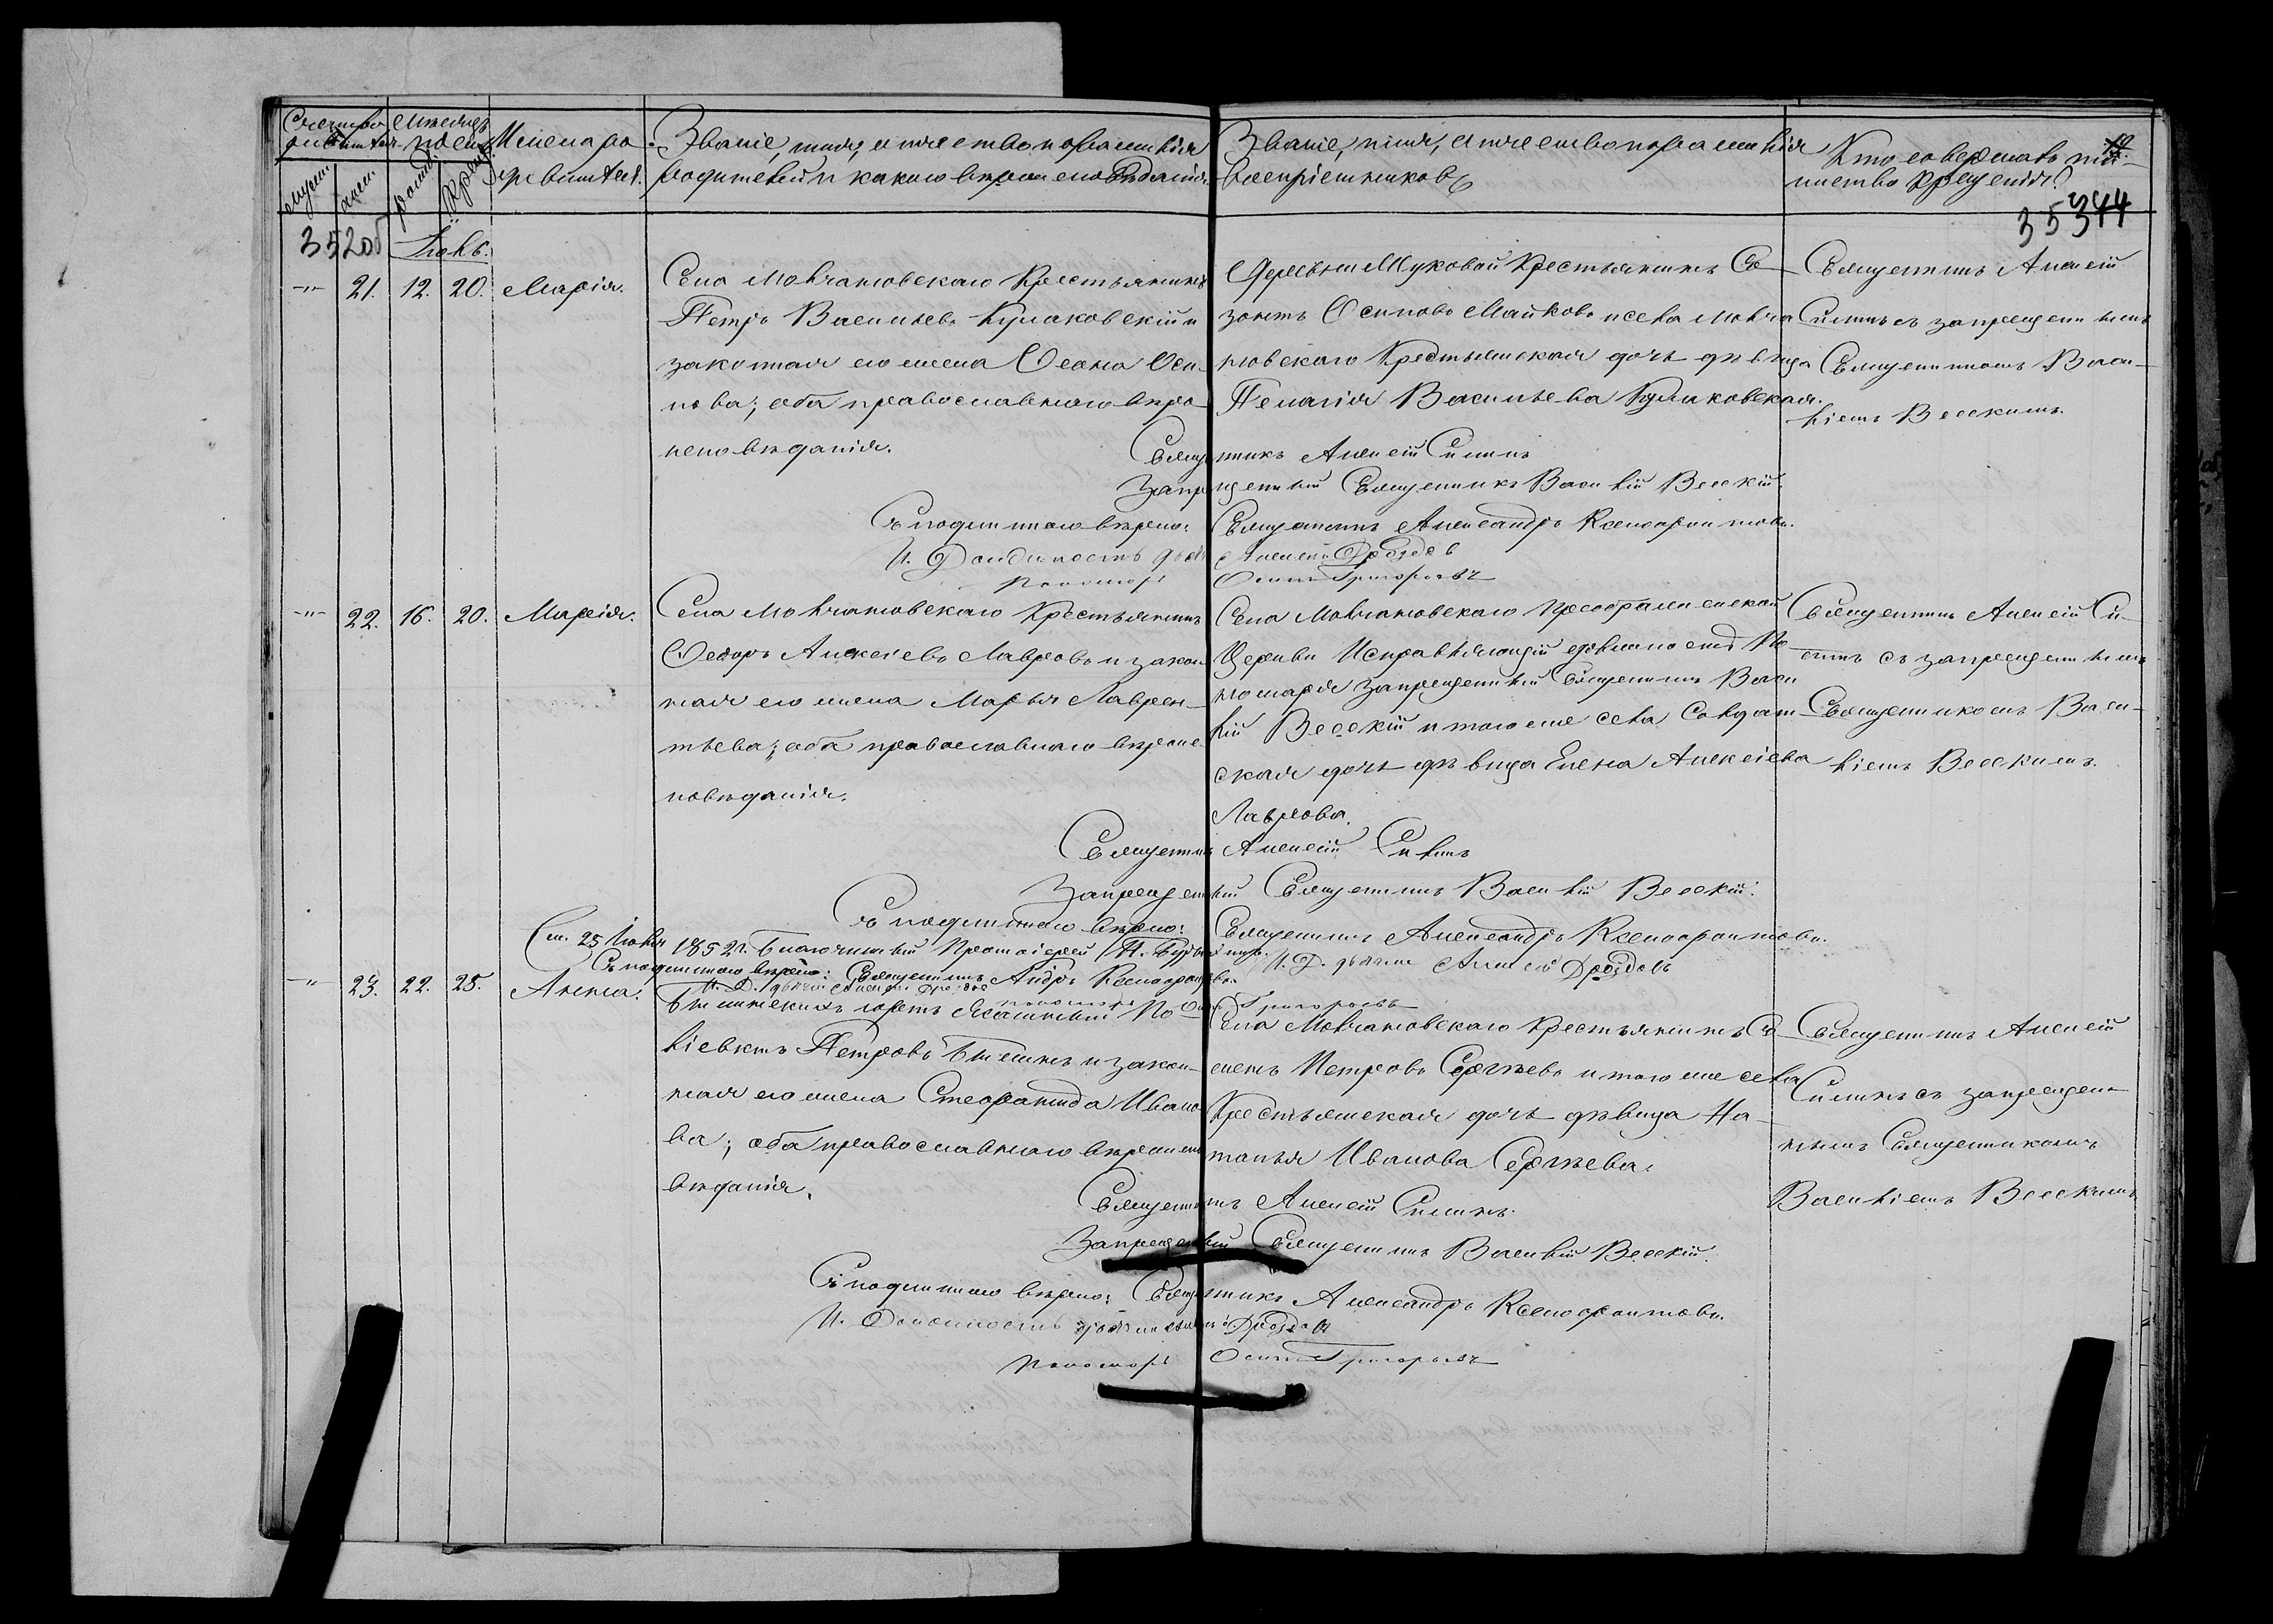 Счетъ ро-
дившихся
Мѣсяцъ
и день
муж.
жен.
рожд.
крещ.
Имена ро-
дившихся.
Званіе, имя, отчество и фамилія
родителей и какого вѣроисповѣданія.
Званіе, имя, отчество и фамилія
воспріемниковъ
Кто совершалъ таи-
инство крещенія?
19
344
35
352об
Іюль.
-"- 21. 12. 20. Марія.
Села Молчановскаго Крестьянинъ
Петръ Васильевъ Куликовскій и
законная его жена Ѳеона Оси-
пова; оба православнаго вѣро-
исповѣданія.
Деревни Жуковой Крестьянинъ Со-
зонтъ Осиповъ Майковъ и села Молча-
новскаго Крестьянская дочь дѣвица
Пелагія Васильева Куликовская.
Священникъ Алексій
Силинъ съ запрещеннымъ
Священникомъ Васи-
ліемъ Веескимъ.
Священникъ Алексій Силинъ
Запрещенный Священникъ Василій Веескій.
Съ подлиннымъ вѣрно: Священникъ Александръ Ксенофонтовъ.
И. Должность дьячка Алексѣй Дроздовъ
Пономарь Осипъ Григорьевъ
-"- 22. 16. 20. Марія.
Села Молчановскаго Крестьянинъ
Ѳедоръ Алексѣевъ Лавровъ и закон-
ная его жена Марья Лаврен-
тьева; оба православнаго вѣроис-
повѣданія.
Села Молчановскаго Преображенской
Церкви Исправляющій должность По-
номаря запрещенный Священникъ Васи-
лій Веескій и того же села Солдат-
ская дочь дѣвица Елена Алексѣева
Лаврова.
Священникъ Алексій Си-
линъ съ запрещеннымъ
Священникомъ Васи-
ліемъ Веескимъ.
Священникъ Алексій Силинъ
Запрещенный Священникъ Василій Веескій.
Съ подлиннымъ вѣрно: Священникъ Александръ Ксенофонтовъ.
См. 25 Іюля 1852 г. Благочинный Протоіерей
И. Д. дьячка Алексѣй Дроздовъ
Съ подлиннымъ вѣрно: Священникъ Андръ Ксенофонтовъ.
И. Д. дьячка Алексѣй Дроздовъ
пономарь Осипъ Григорьевъ
-"- 23. 22. 25. Анна.
По-
ліевктъ Петровъ и закон-
ная его жена Стефанида Ивано-
ва; оба православнаго вѣроиспо-
вѣданія.
Села Молчановскаго Крестьянинъ Се-
менъ Петровъ Сергѣевъ и того же села
Крестьянская дочь дѣвица На-
талья Иванова Сергѣева.
Священникъ Алексій
Силинъ съ запрещен-
нымъ Священникомъ
Василіемъ Веескимъ
Священникъ Алексій Силинъ.
Запрещенный Священникъ Василій Веескій.
Съ подлиннымъ вѣрно: Священникъ Александръ Ксенофонтовъ.
И. Должность дьячка Алексѣй Дроздовъ
Пономарь Осипъ Григорьевъ